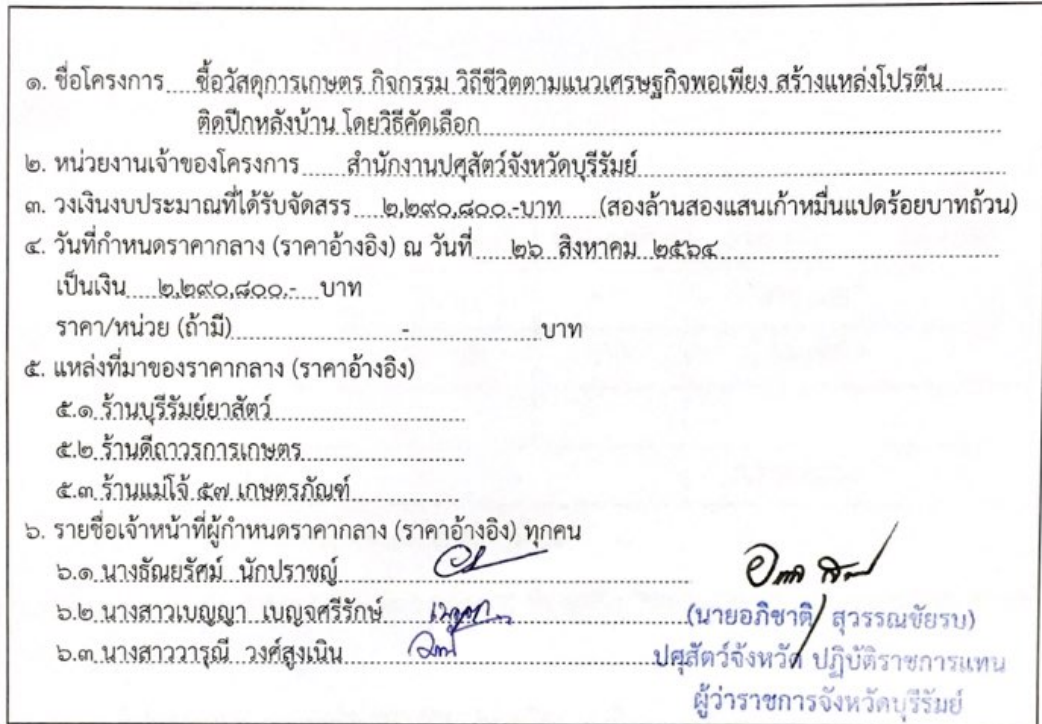 ๑. ชื่อโครงการ ซื้อวัสดุการเกษตร กิจกรรม วิถีชีวิตตามแนวเศรษฐกิจพอเพียง สร้างแหล่งโปรตีน
ติดปีกหลังบ้าน โดยวิธีคัดเลือก
๒. หน่วยงานเจ้าของโครงการ สำนักงานปศุสัตว์จังหวัดบุรีรัมย์
๓. วงเงินงบประมาณที่ได้รับจัดสรร ๒,๒๙๐,๘๐๐.-บาท (สองล้านสองแสนเก้าหมื่นแปดร้อยบาทถ้วน)
๔. วันที่กำหนดราคากลาง (ราคาอ้างอิง) ณ วันที่ ๒๖ สิงหาคม ๒๕๖๔
เป็นเงิน ๒,๒๙๐,๘๐๐.- บาท
ราคา/หน่วย (ถ้ามี) - บาท
๕. แหล่งที่มาของราคากลาง (ราคาอ้างอิง)
๕.๑ ร้านบุรีรัมย์ยาสัตว์
๕.๒ ร้านดีถาวรการเกษตร
๕.๓ ร้านแม่โจ้ ๕๗ เกษตรภัณฑ์
๖. รายชื่อเจ้าหน้าที่ผู้กำหนดราคากลาง (ราคาอ้างอิง) ทุกคน
๖.๑ นางธัณยรัศม์ นักปราชญ์
๖.๒ นางสาวเบญญา เบญจศรีรักษ์ (นายอภิชาติ สุวรรณชัยรบ)
๖.๓ นางสาววารุณี วงศ์สูงเนิน ปศุสัตว์จังหวัด ปฏิบัติราชการแทน
ผู้ว่าราชการจังหวัดบุรีรัมย์